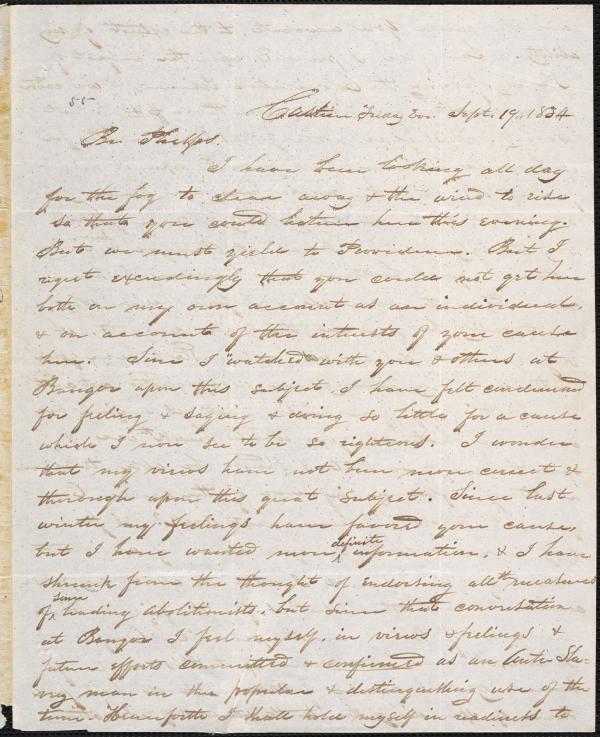 55
Castine Friday Eve. Sept. 19, 1834
Br. Phelps.
I have been looking all day
for the fog to clear away & the wind to rise
so that you could lecture here this evening.
But we must yield to Providence. But I
regret exceedingly that you could not get here
both on my own account as an individual,
& on account of the interests of your cause
here. Since I "watched" with you & others at
Bangor upon this subject, I have felt condemned
for feeling & saying & doing so little for a cause
which I now see to be so righteous. I wonder
that my views have not been more correct &
thorough upon this great subject. Since last
winter my feelings have favored your cause,
but I have wanted more definite information, & I have
shrunk from the thought of endorsing all the measures
of some leading abolitionists, but since that conversation
at Bangor I feel myself, in views & feelings &
future efforts committed & confirmed as an Anti Sla-
very man in the popular & distinguishing use of the
term. Henceforth I shall hold myself in readiness to